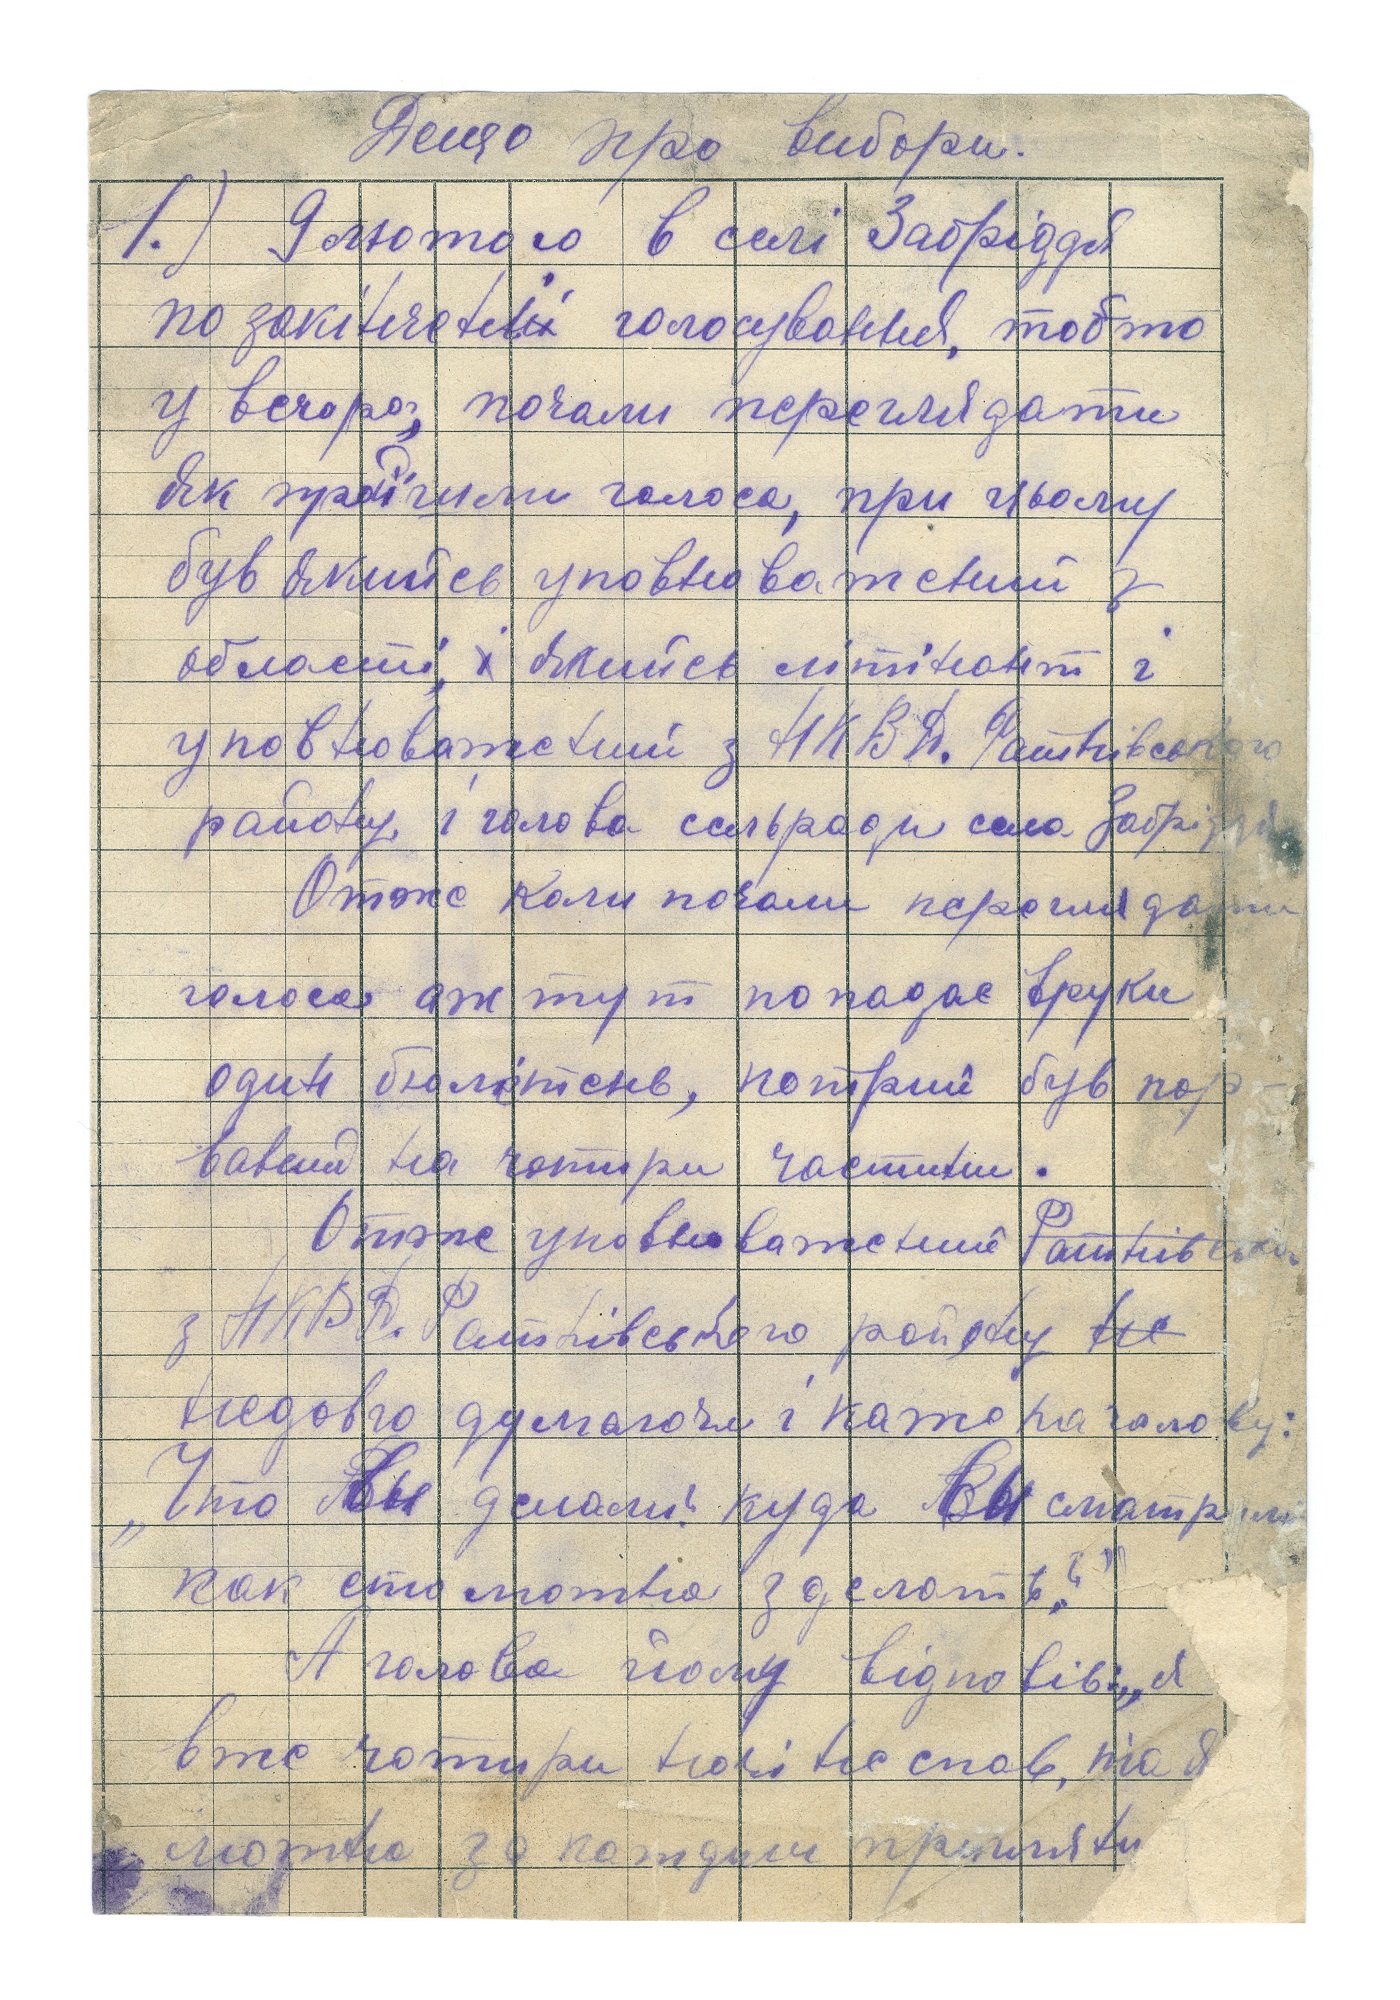 Дещо про вибори.
1.) 9 лютого в селі Забріддя
по закінченні голосування, тобто
у вечорі, почали переглядати
як пройшли голоса, при цьому
був якийсь уповноважений з
області, і якийсь літінант і
уповноважений з НКВД. Ратнівського
району, і голова сельради села Забріддя
Отже коли почали переглядати
голоса аж тут попадає вруки
один бюлетень, котрий був пор-
ваний на чотири частини.
Отже уповноважений Ратнівського
з НКВД. Ратнівського району не
недовго думаючи і каже на голову:
„Что Вы делали? куда Вы сматрили
как ето можно зделать?"
А голова йому відповів: „я
вже чотири ночі не спав, та я
можна за каждим приглянути